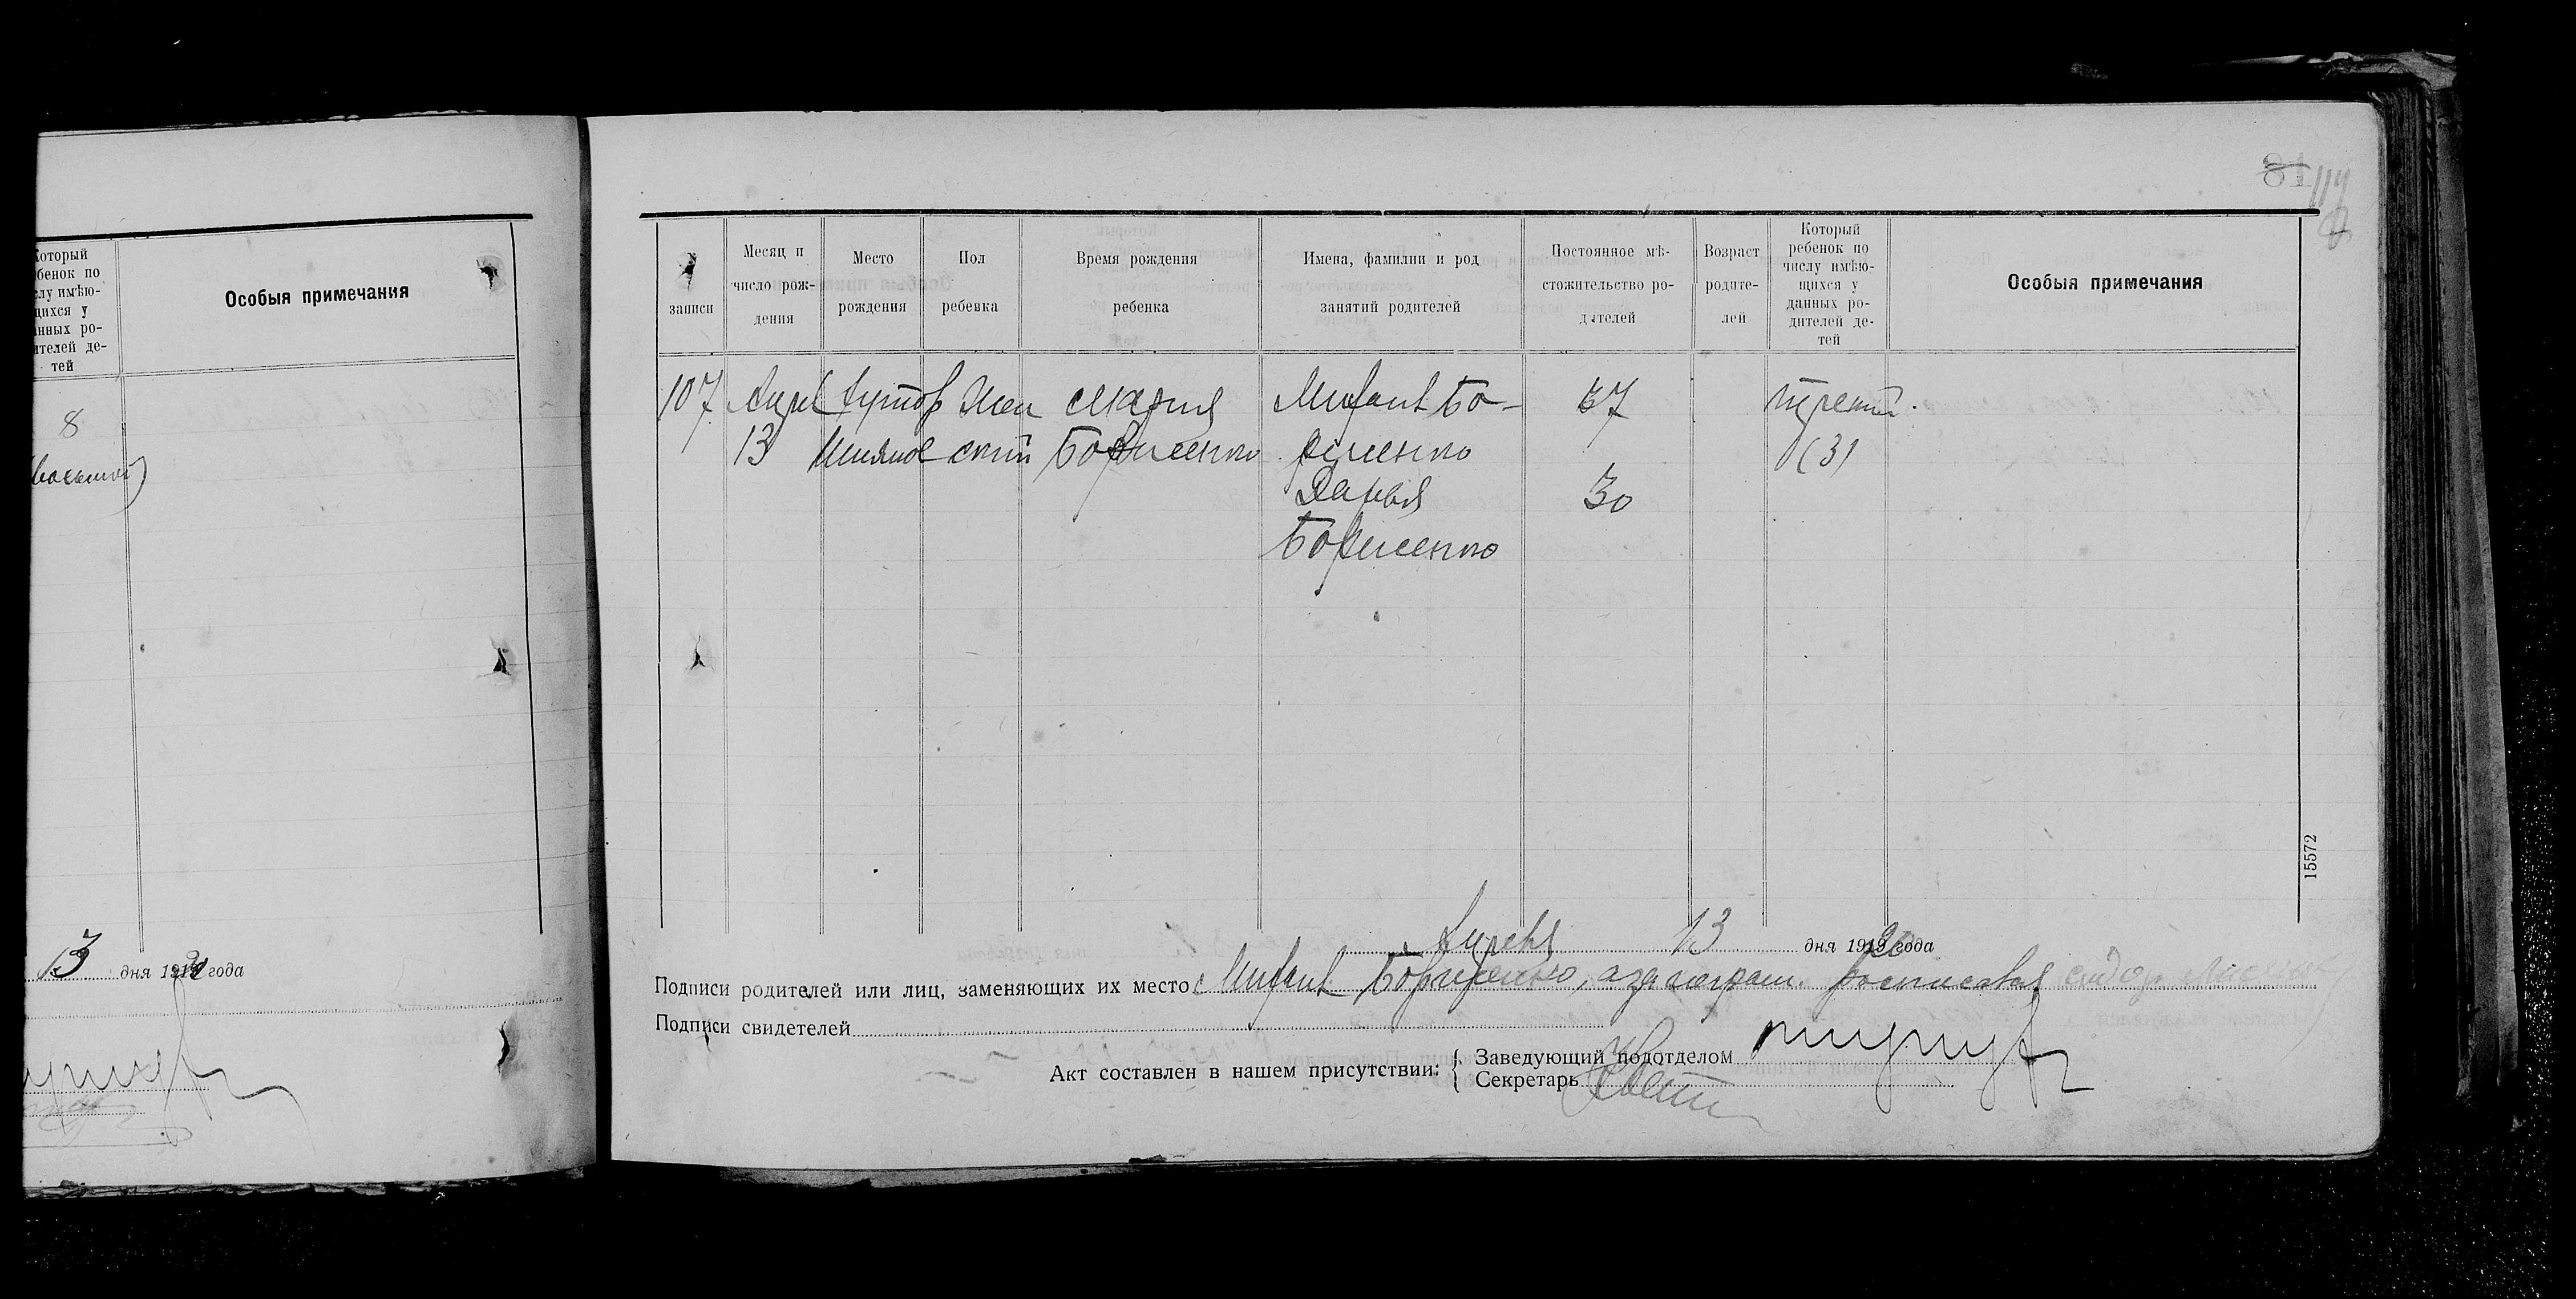 Который
ребенок по
числу имѣю-
щихся у
данных ро-
дителей де-
тей
Особыя примечания
8
(восьмой)
13 дня 1919 года
81
114
записи
Месяц и
число рож-
дения
Место
рождения
Пол
ребенка
Время рождения
ребенка
Имена, фамилии и род
занятий родителей
Постоянное мѣ-
стожительство ро-
дителей
Возраст
родите-
лей
Который
ребенок по
числу имѣю-
щихся у
данных ро-
дителей де-
тей
Особыя примечания
107 Апрел Хутор Жен Мария 37 третий
13 ский Борисенко (3)
Дарья 30
Борисенко
15572
Апреля 13 дня 1920 года
Подписи родителей или лиц, заменяющих их место Борисенко, а за неграм. росписався
Подписи свидетелей
Акт составлен в нашем присутствии:
Заведующий подотделом
Секретарь